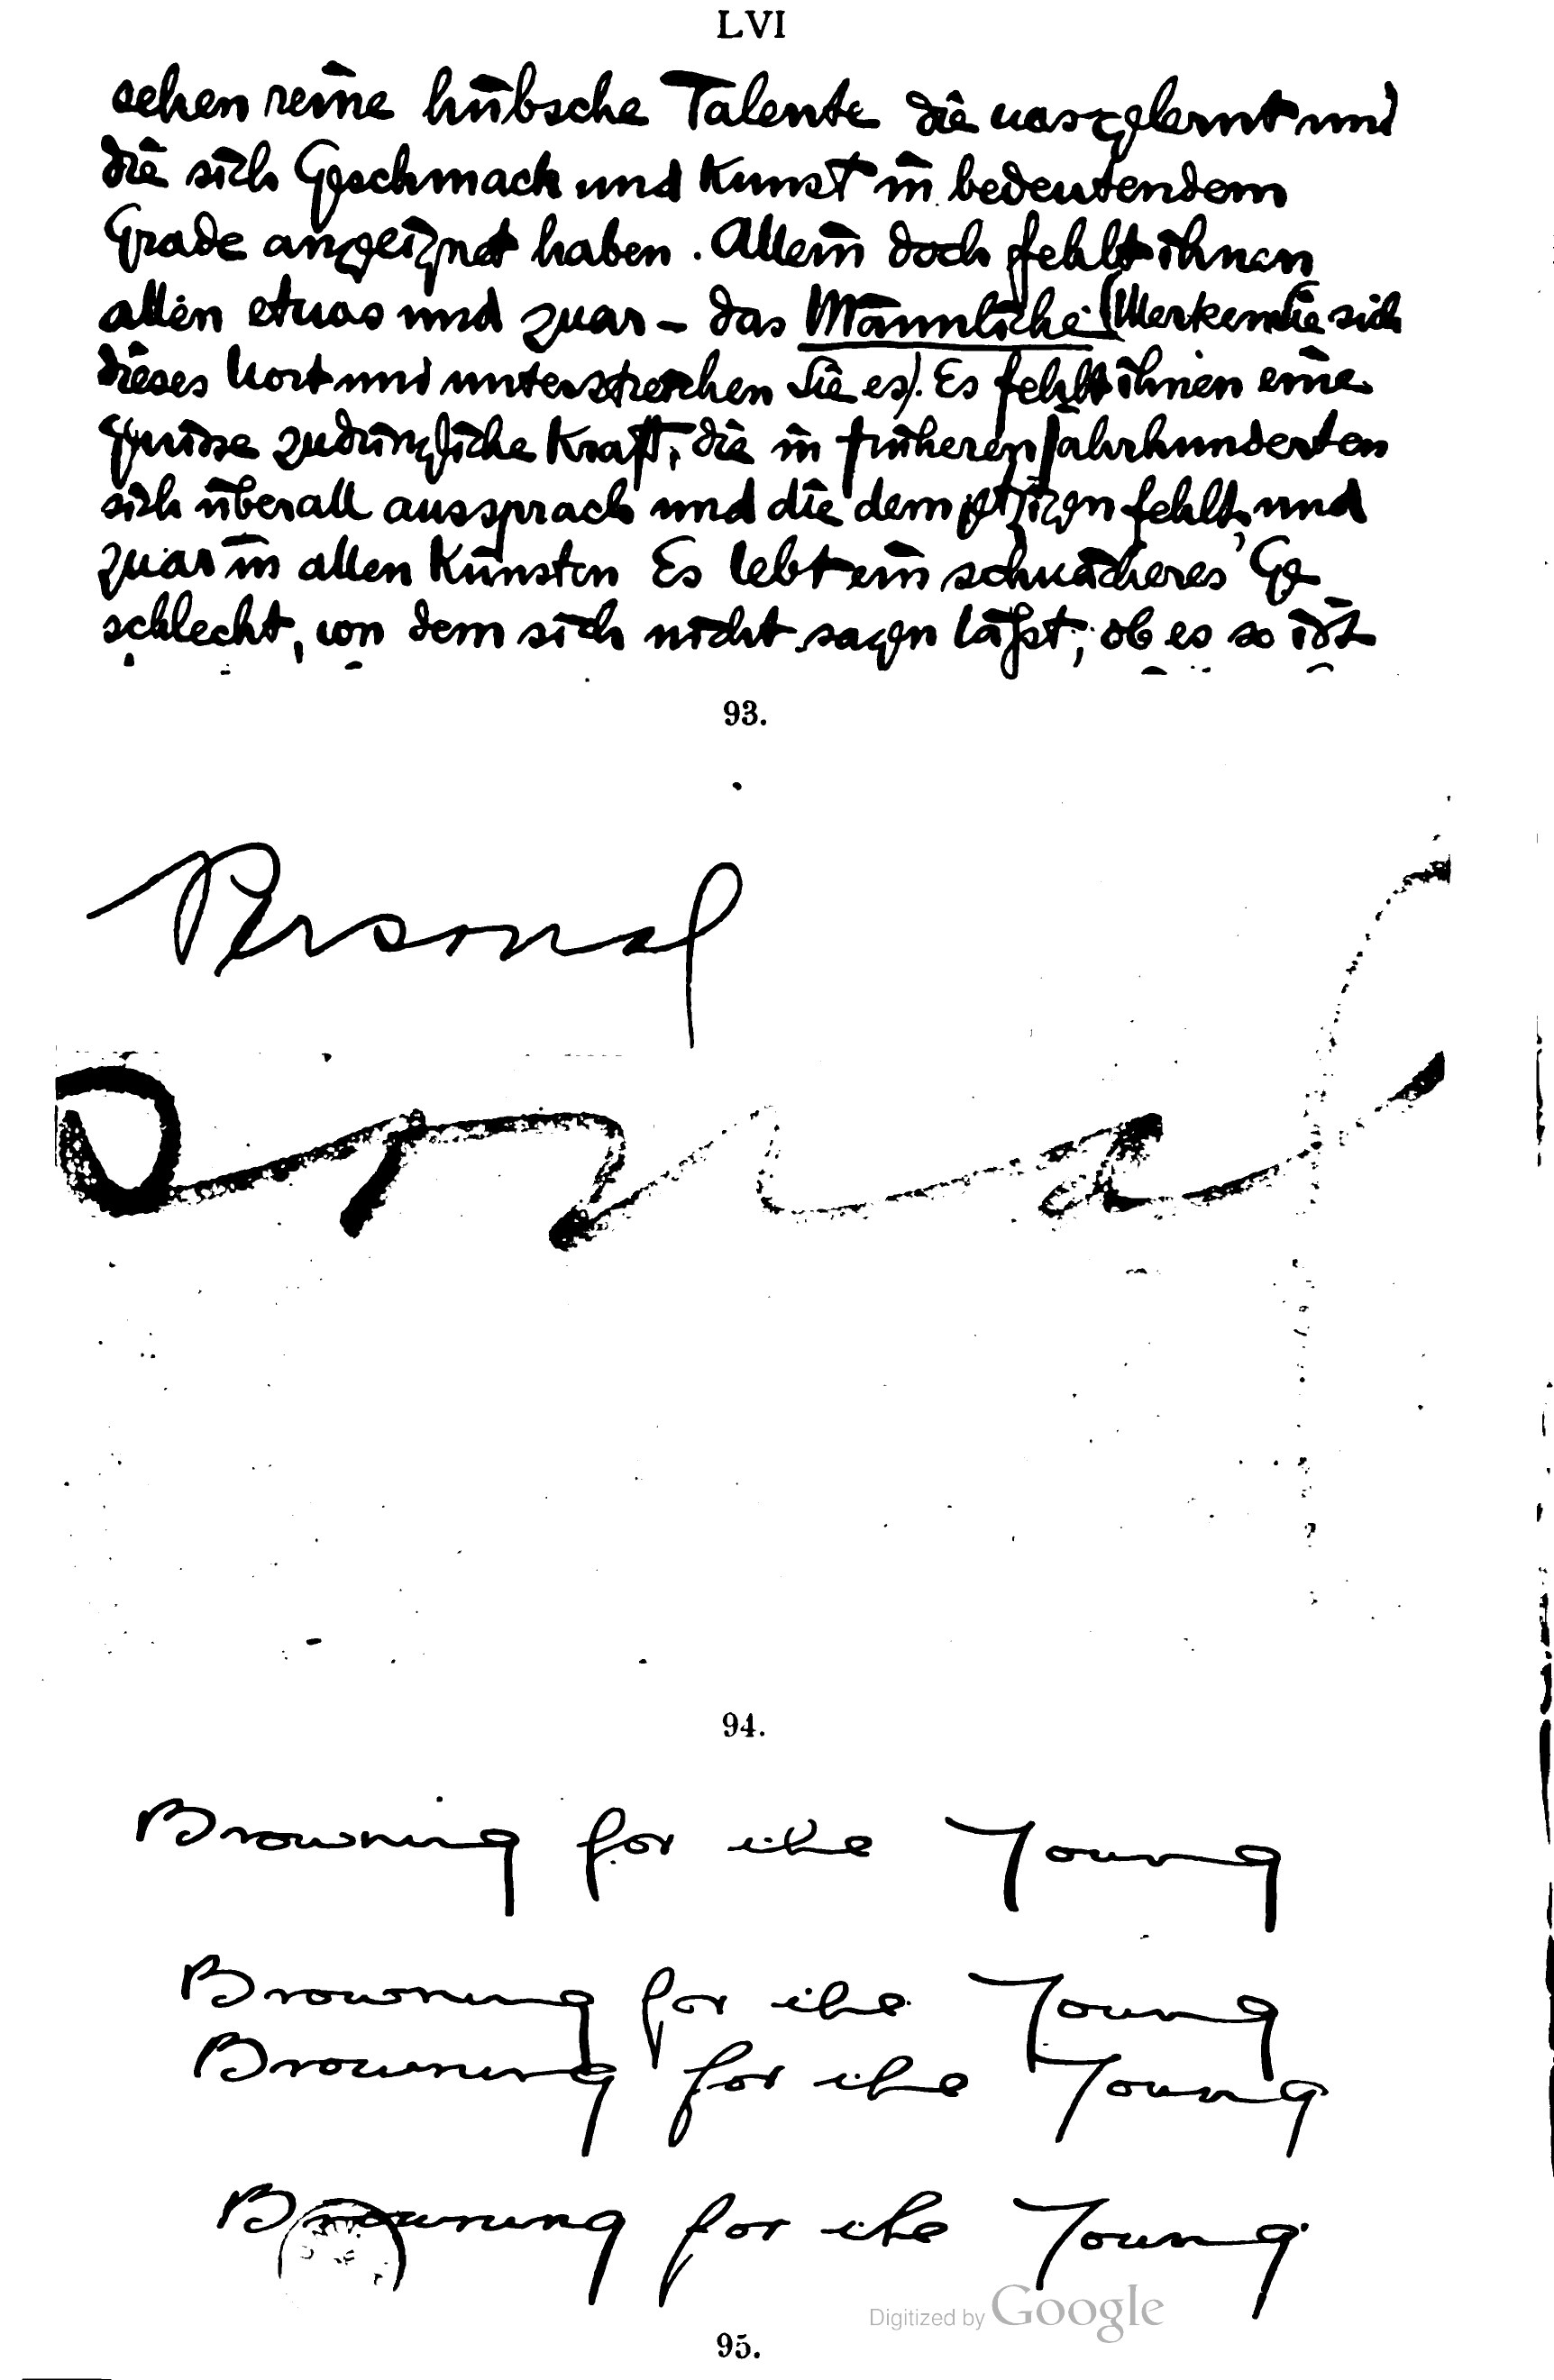 LVI
sehen reine hübsche Talente die was gelernt und
die sich Geschmack und Kunst in bedeutendem
Grade angeignet haben. Allein doch fehlt ihnen
allen etwas und zwar – das Männliche (Merken Sie sich
dieses Wort und unterstreichen Sie es). Es fehlt ihnen eine
gewisse zudringliche Kraft, die in früheren Jahrhunderten
sich überall aussprach und die dem jetzigen fehlt, und
zwar in allen Künsten Es lebt ein schwächeres Ge
schlecht, von dem sich nicht sagen läßt, ob es so ist
93.
Personal
onal
94.
Browning for the Young
Browning for the Young
Browning for the Young
Browning for the Young
Digitized by Google
95.